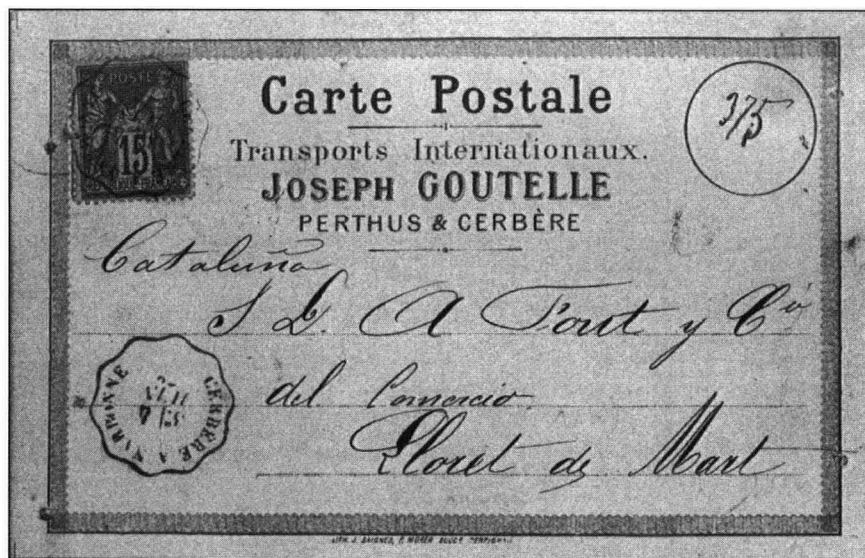 POSTE
15
Carte Postale
375
Transports Internationaux.
JOSEPH GOUTELLE
PERTHUS & CERBÈRE
Cataluña
S D. A Font y Cia
del Comercio
Lloret de Mart
CERBERE A NARBONNE